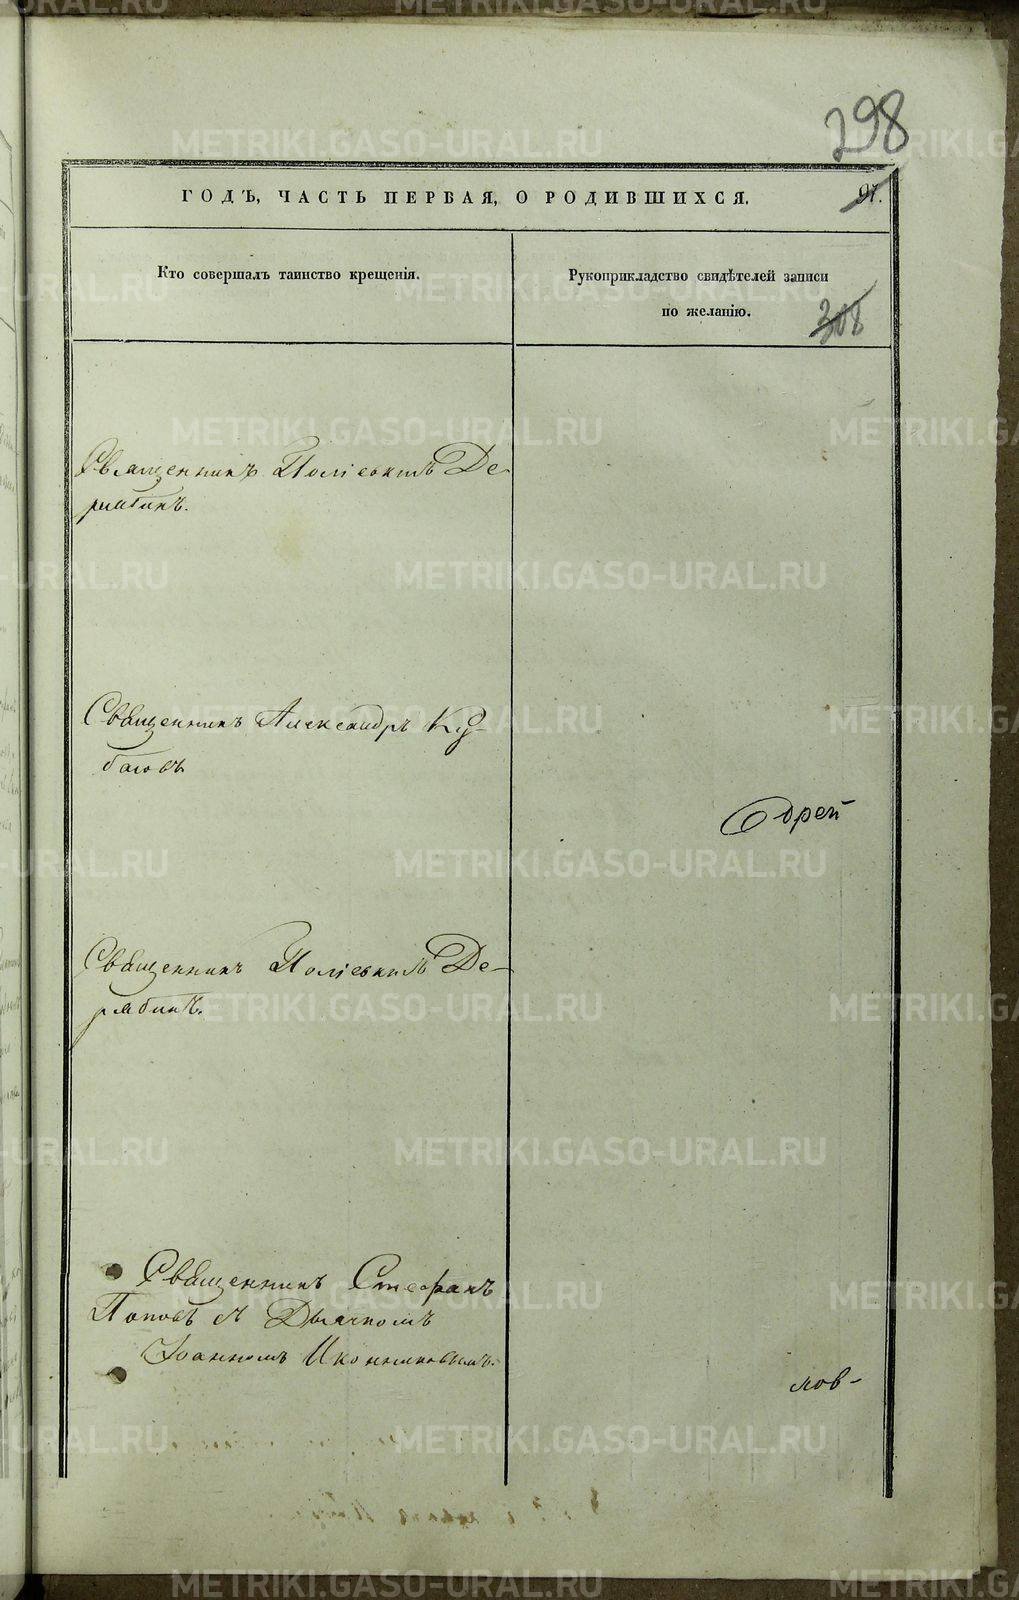 298
ГОДЪ, ЧАСТЬ ПЕРВАЯ, О РОДИВШИХСЯ.
97.
Кто совершалъ таинство крещенія.
Рукоприкладство свидѣтелей записи
по желанію.
308
Священникъ Поліевктъ Де-
рябинъ.
Священникъ Александръ Ку-
басовъ
Священникъ Поліевктъ Де-
рябинъ.
Священникъ Стефанъ
Поповъ съ Дьячкомъ
Іоанномъ Иконниковымъ.
лов-
METRIKI.GASO-URAL.RU